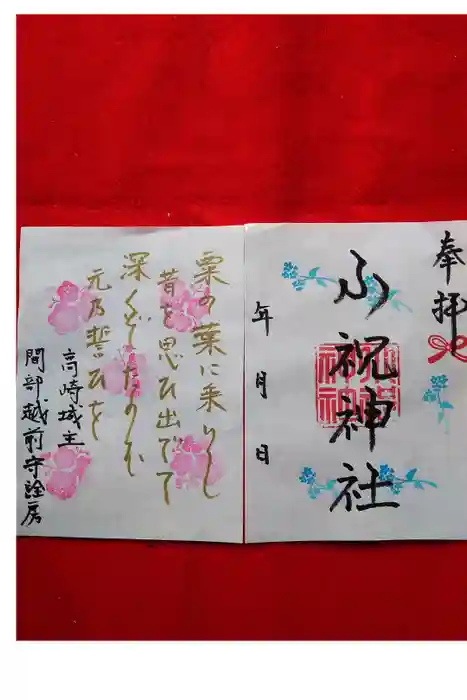 奉拝
山祝神社
年 月 日
栗の葉に乗りし
昔を思ひ出でて
深くぞたのむ
元乃誓ひを
高崎城主
間部越前守詮房